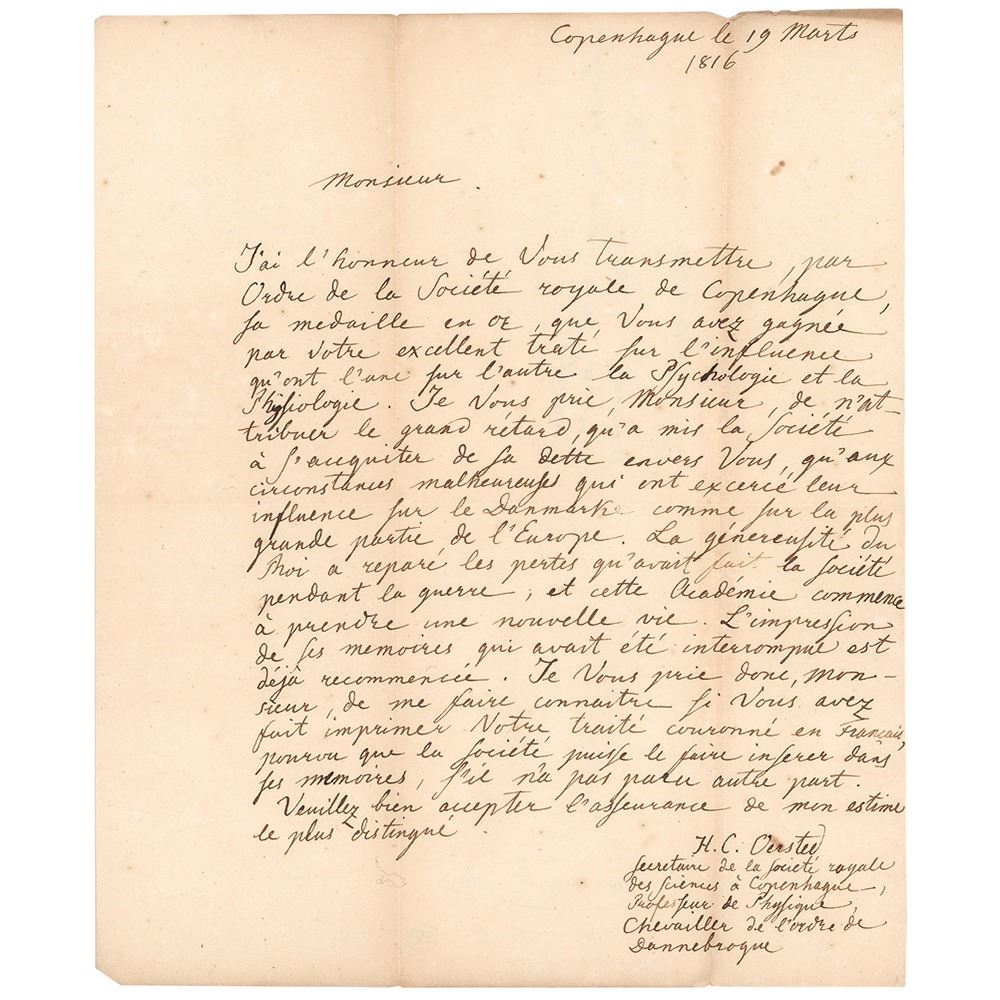 Copenhague le 19 Marts
1816
Monsieur.
J'ai l'honneur de Vous transmettre, par
Ordre de la Société royale de Copenhague,
sa medaille en or, que, Vous avez gagnée
par votre excellent traté sur l'influence
qu'ont l'une sur l'autre la Psychologie et la
Physiologie. Je Vous prie, Monsieur, de n'at-
tribuer le grand rétard, qu'a mis la Société
à s'acquiter de sa dette envers Vous, qu'aux
circonstances malheureuses qui ont excercé leur
influence sur le Danmark comme sur la plus
grande partie de l'Europe. La génereusité du
Roi a reparé les pertes qu'avait fait la Société
pendant la guerre; et cette Académie commence
à prendre une nouvelle vie. L'impression
de ses memoires qui avait été interrompue est
déjà recommencée. Je Vous prie donc, Mon-
sieur, de me faire connaitre si Vous avez
fait imprimer Votre traité couronné en Français,
pourvu que la Société puisse le faire inserer dans
ses memoires, s'il n'a pas paru autre part.
Veuillez bien accepter l'assurance de mon estime
le plus distingué.
H. C. Oersted
Secretaire de la Société royale
des sciences à Copenhague,
Professeur de Physique,
Chevailler de l'ordre de
Dannebroque